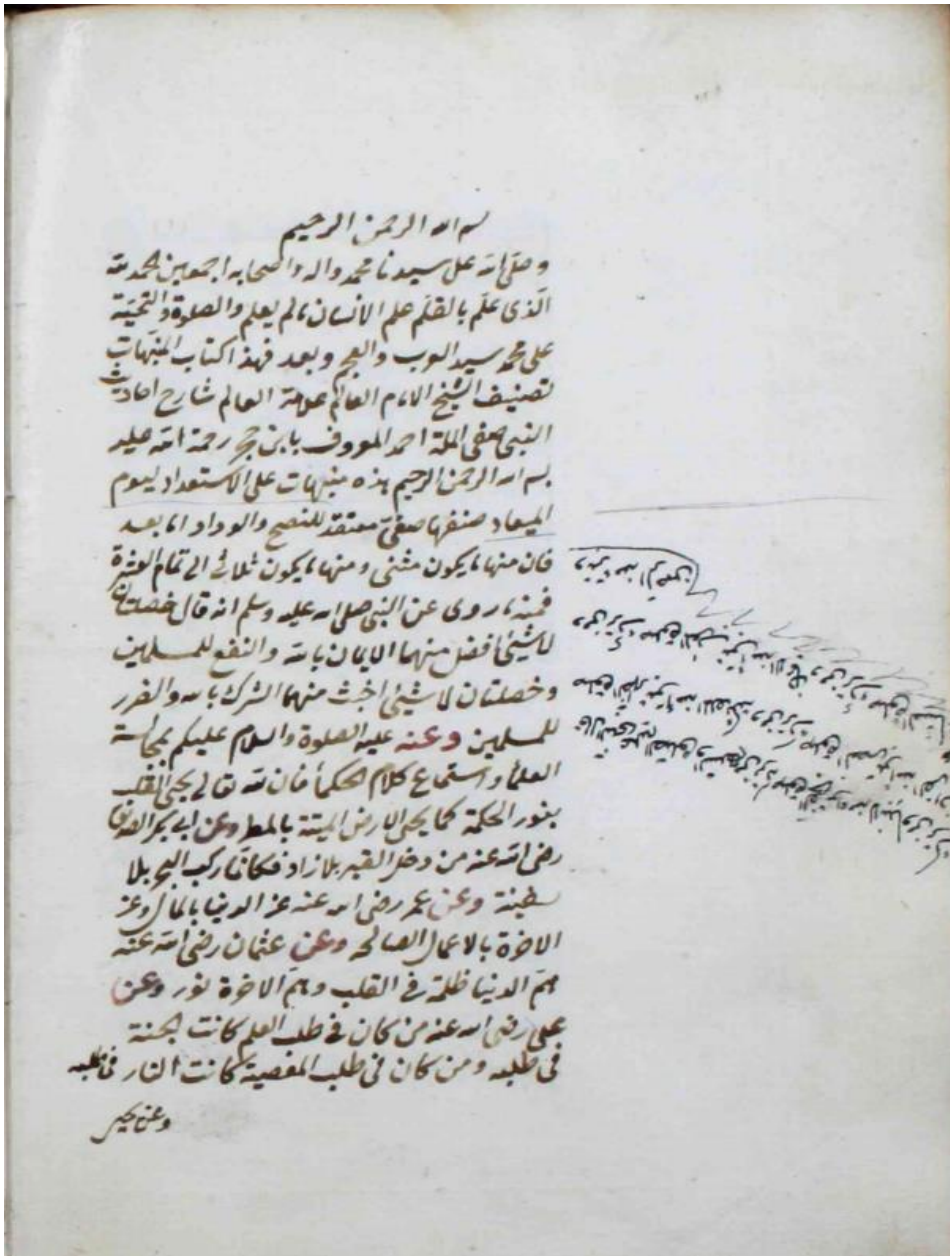 بسم الله الرحمن الرحيم
وصلّى الله على سيدنا محمد واله واصحابه اجمعين الحمد لله
الّذى علّم بالقلم علم الانسان مالم يعلم والصلوة والتحيّة
على محمد سيد العرب والعجم وبعد فهذا كتاب المنبّهات
تصنيف الشيخ الامام العالم علامة العالم شارح احاديث
النبى صفى الملة احمد المعروف بابن حجر رحمة الله عليه
بسم الله الرحمن الرحيم هذه منبهات على الاستعداد ليوم
الميعاد صنفها صفىّ معتقد للنصح والوداد اما بعد
فان منها ما يكون مثنى ومنها ما يكون ثلاث الى تمام العشرة
فمنه ما روى عن النبى صلى الله عليه وسلم انه قال خصلتان
لا شيئ أفضل منهما الايمان بالله والنفع للمسلمين
وخصلتان لا شيئ اخبث منهما الشرك بالله والضرر
للمسلمين وعنه عليه الصلوة والسلام عليكم بمجالسة
العلمأ واستماع كلام الحكمأ فان لله تعالى يحيى القلب
بنور الحكمة كما يحيى الارض الميتة بالمطر وعن ابى بكر الصديق
رضى الله عنه من دخل القبر بلا زاد فكانّما ركب البحر بلا
سفينة وعن عمر رضى الله عنه عز الدنيا بالمال وعز
الاخرة بالاعمال الصالحه وعن عثمان رضى الله عنه
همّ الدنيا ظلمة فى القلب وهمّ الاخرة نور وعن
على رضى الله عنه من كان فى طلب العلم كانت الجنة
فى طلبه ومن كان فى طلب المعصية كانت النار فى طلبه
وعن يحيى